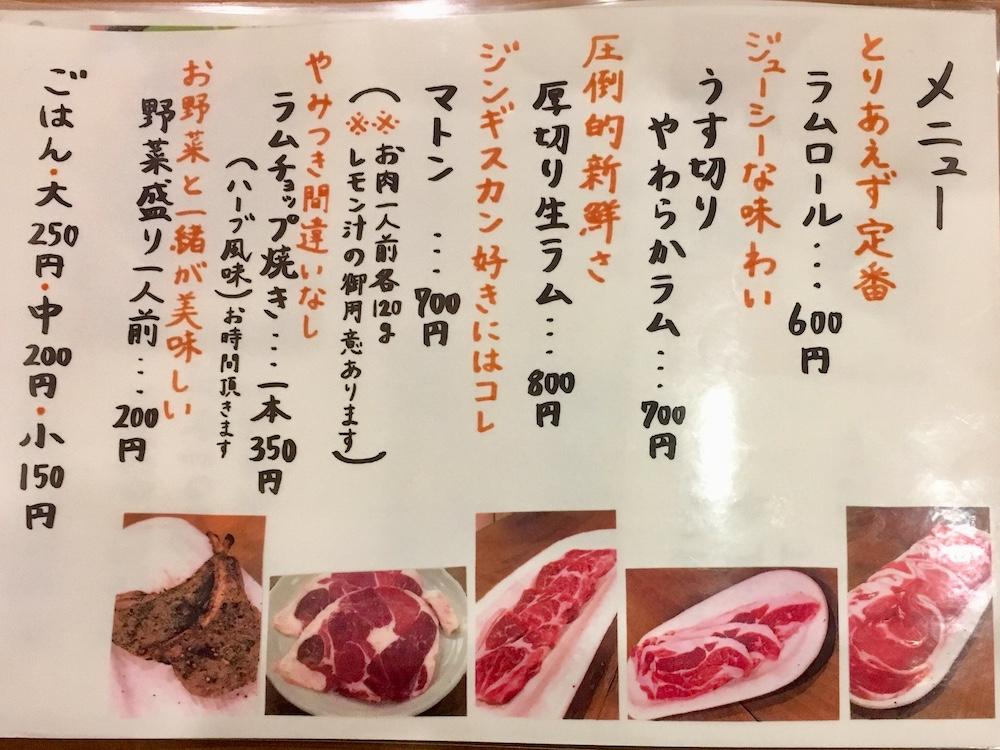 メニュー
とりあえず定番
ラムロール・・・・600円
ジューシーな味わい
うす切り
やわらかラム・・・700円
圧倒的新鮮さ
厚切り生ラム・・・800円
ジンギスカン好きにはコレ
マトン・・・700円
(※お肉一人前各120g
※レモン汁の御用意あります)
やみつき間違いなし
ラムチョップ焼き・・・一本350円
(ハーブ風味)お時間頂きます
お野菜と一緒が美味しい
野菜盛り一人前・・・200円
ごはん・大250円・中200円・小150円